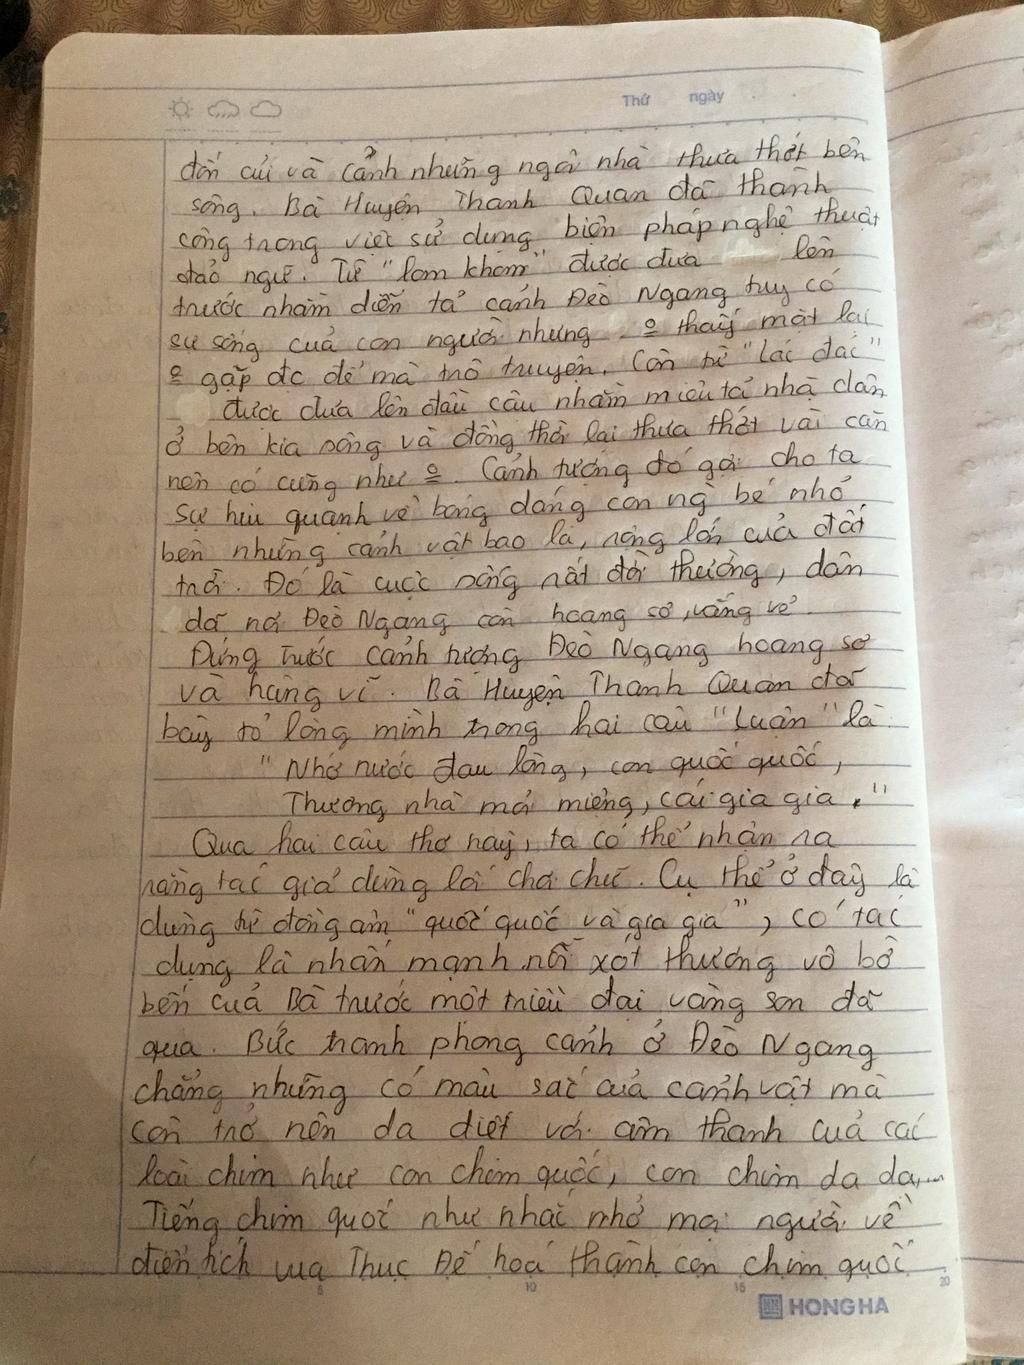 Thứ ngày
đốn củi và cảnh những ngôi nhà thưa thớt bên
sông. Bà Huyện Thanh Quan đã thành
công trong việc sử dụng biện pháp nghệ thuật
đảo ngữ. Từ "lom khom" được đưa lên
trước nhằm diễn tả cảnh Đèo Ngang tuy có
sự sống của con người nhưng o thấy mặt lại
o gặp đc để mà trò truyện. Còn từ "lác đác"
được đưa lên đầu câu nhằm miêu tả nhà dân
ở bên kia sông và đồng thời lại thưa thớt vài căn
nên có cũng như o. Cảnh tượng đó gợi cho ta
sự hiu quạnh về bóng dáng con ng bé nhỏ
bên những cảnh vật bao la, rộng lớn của đất
trời. Đó là cuộc sống rất đời thường, dân
dã nơi Đèo Ngang còn hoang sơ, vắng vẻ.
Đứng trước cảnh tượng Đèo Ngang hoang sơ
và hùng vĩ. Bà Huyện Thanh Quan đã
bày tỏ lòng mình trong hai câu "Luận" là:
"Nhớ nước đau lòng, con quốc quốc,
Thương nhà mỏi miệng, cái gia gia."
Qua hai câu thơ này, ta có thể nhận ra
rằng tác giả dùng lối chơi chữ. Cụ thể ở đây là
dùng từ đồng âm "quốc quốc và gia gia", có tác
dụng là nhấn mạnh nỗi xót thương vô bờ
bến của Bà trước một triều đại vàng son đã
qua. Bức tranh phong cảnh ở Đèo Ngang
chẳng những có màu sắc của cảnh vật mà
còn trở nên da diết với âm thanh của các
loài chim như con chim quốc, con chim da da,...
Tiếng chim quốc như nhắc nhở mọi người về
điển tích vua Thục Đế hoá thành con chim quốc
5 10 15 20
HONG HA